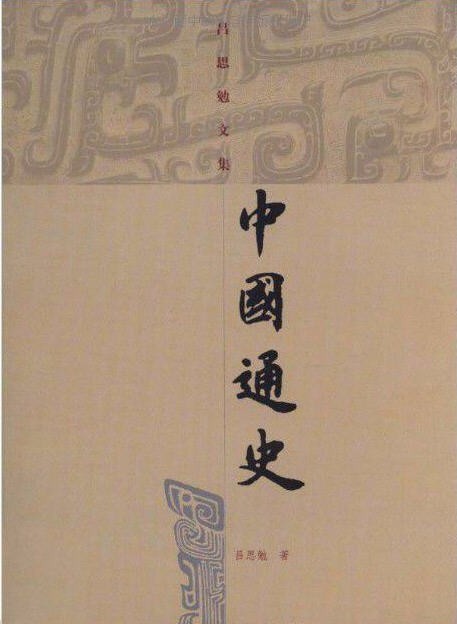 吕思勉文集
中國通史
吕思勉 著